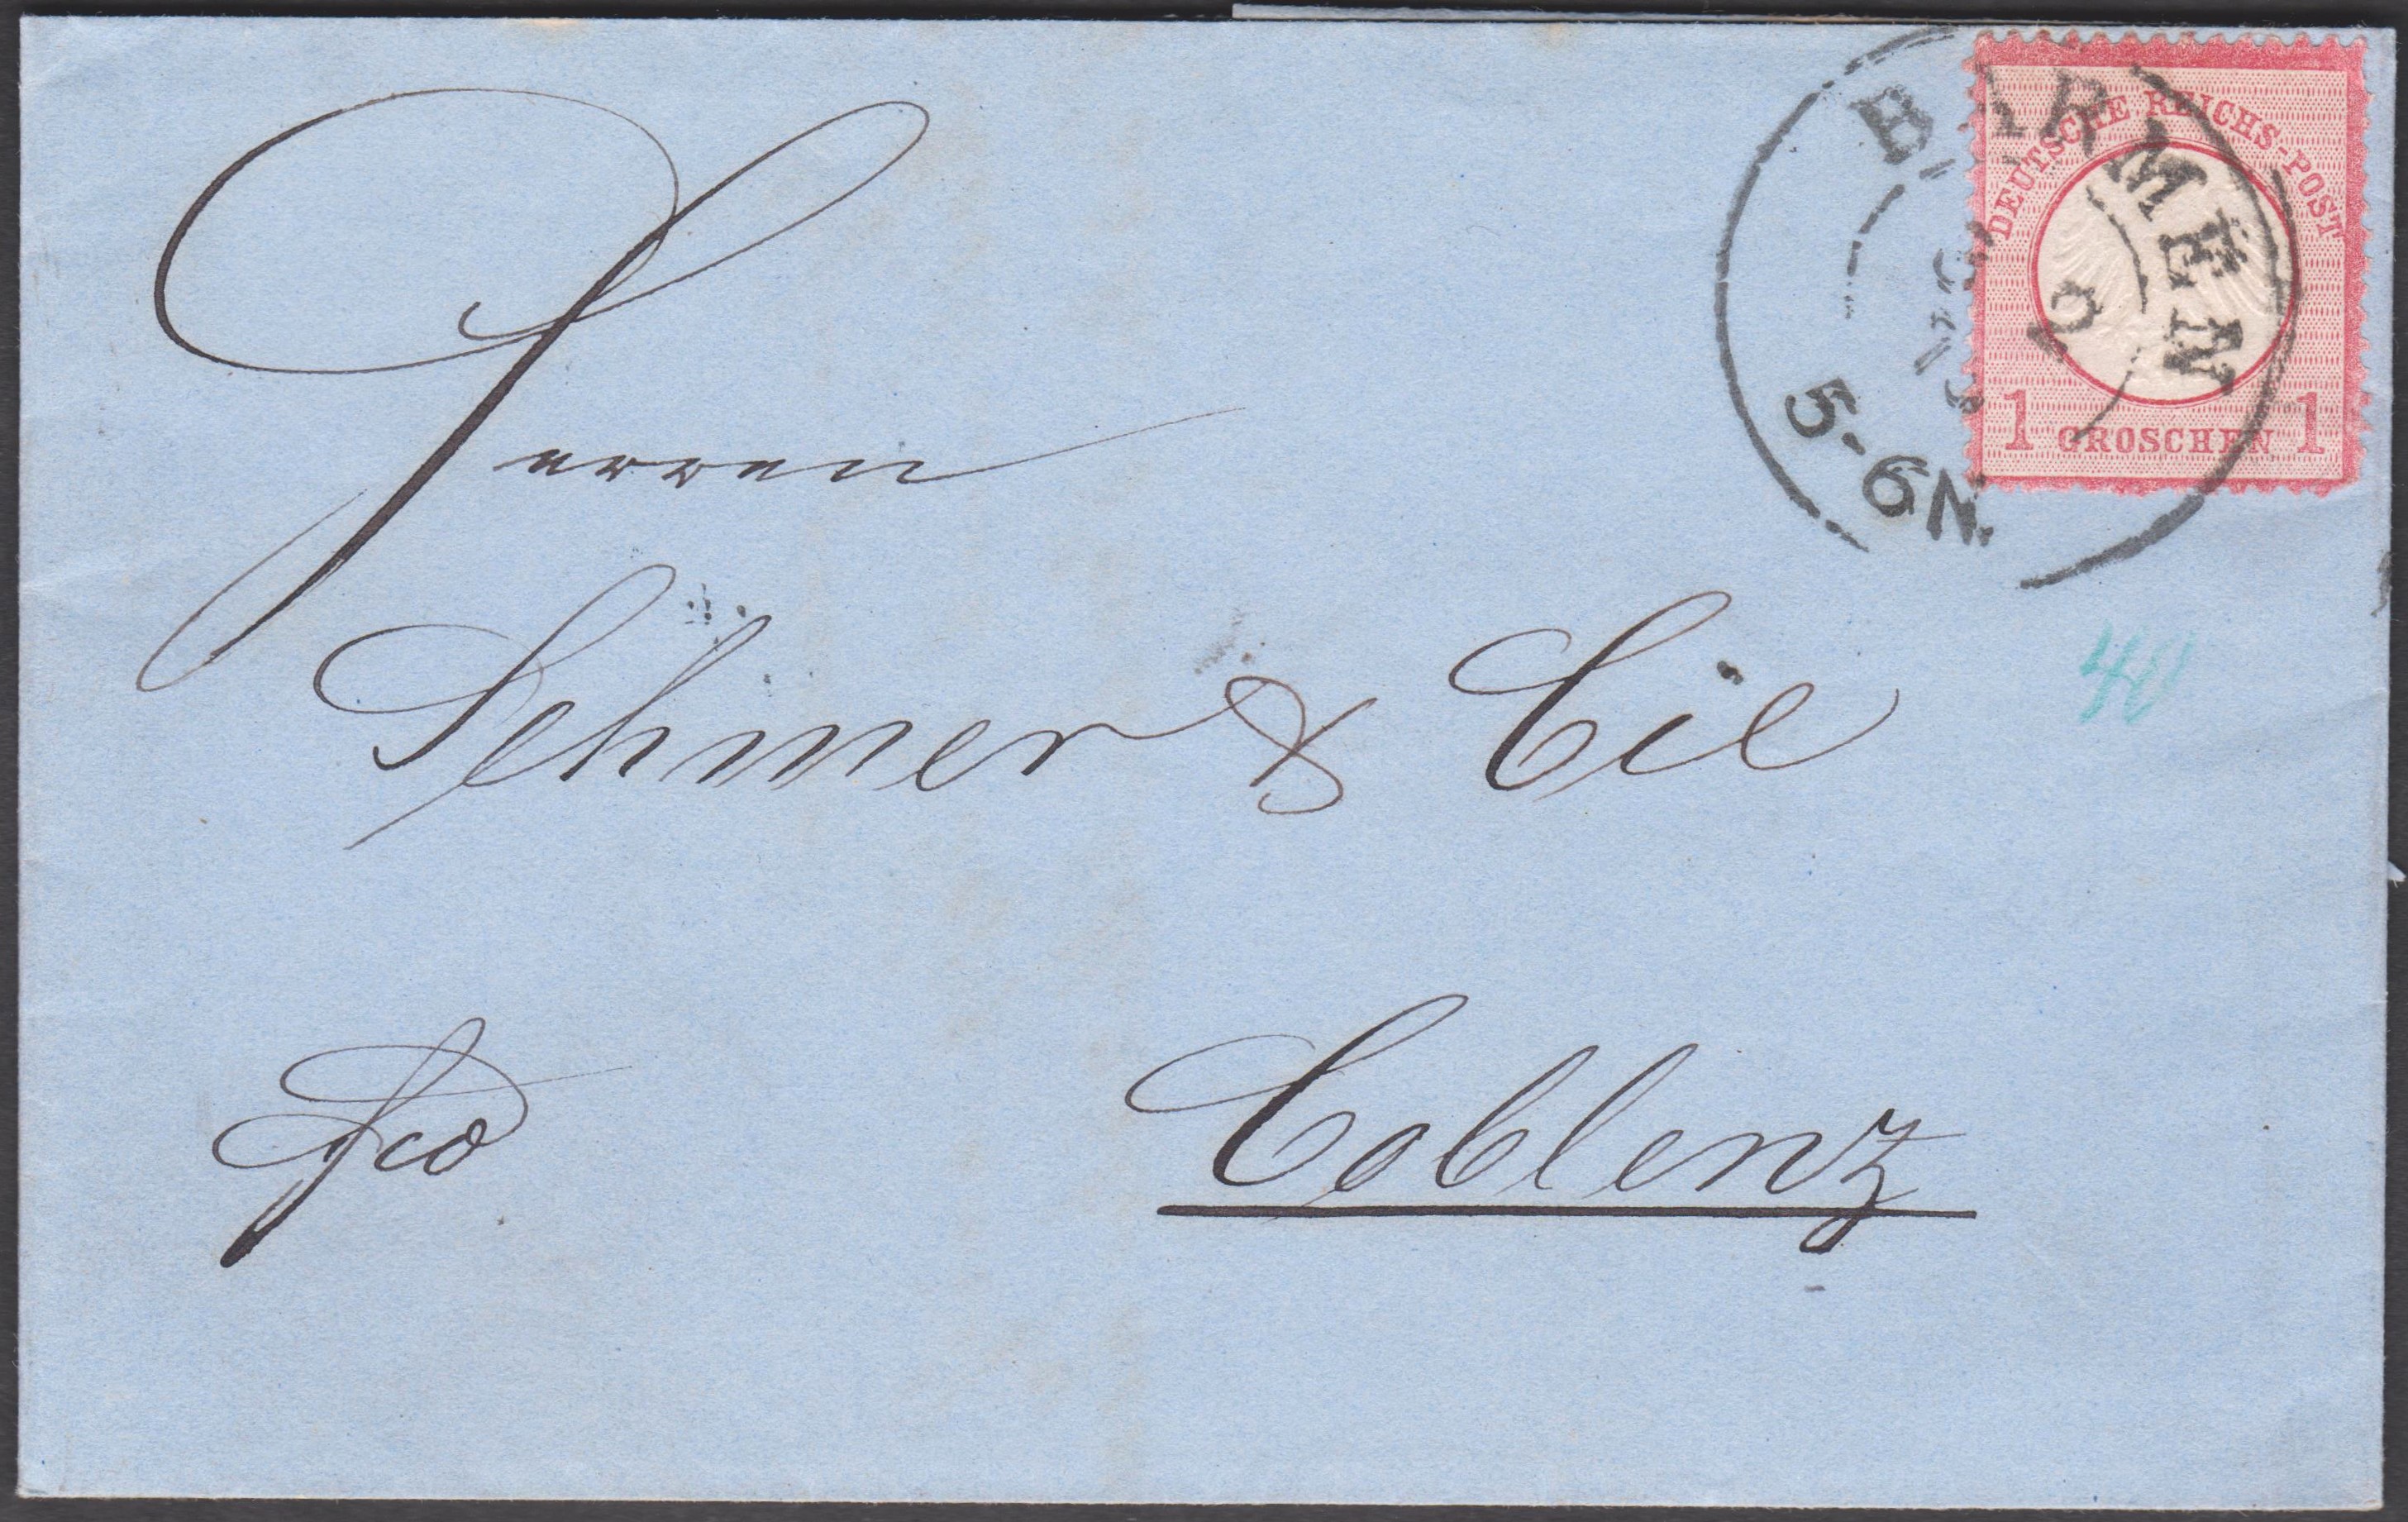 BARMEN
5-6N.
DEUTSCHE REICHS-POST
1 GROSCHEN 1
Herren
Sehmer & Cie
fco
Coblenz